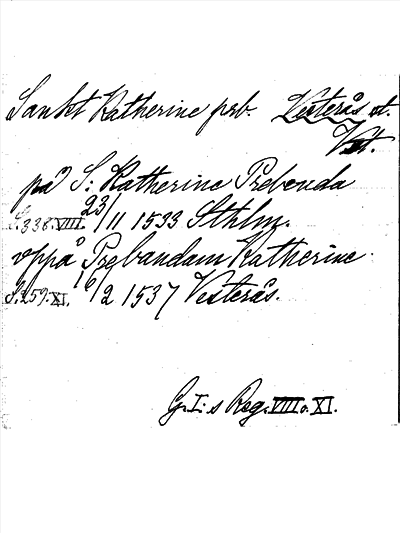 Sankt Katherine prb. Vesterås st.
Vstm.
på S: Katherine Prebenda
S.338.VIII. 23/11 1533 Sthlm.
oppå Prebandam Katherine
S.259.XI. 16/2 1537 Vesterås.
G.I:s Reg. VIII o. XI.